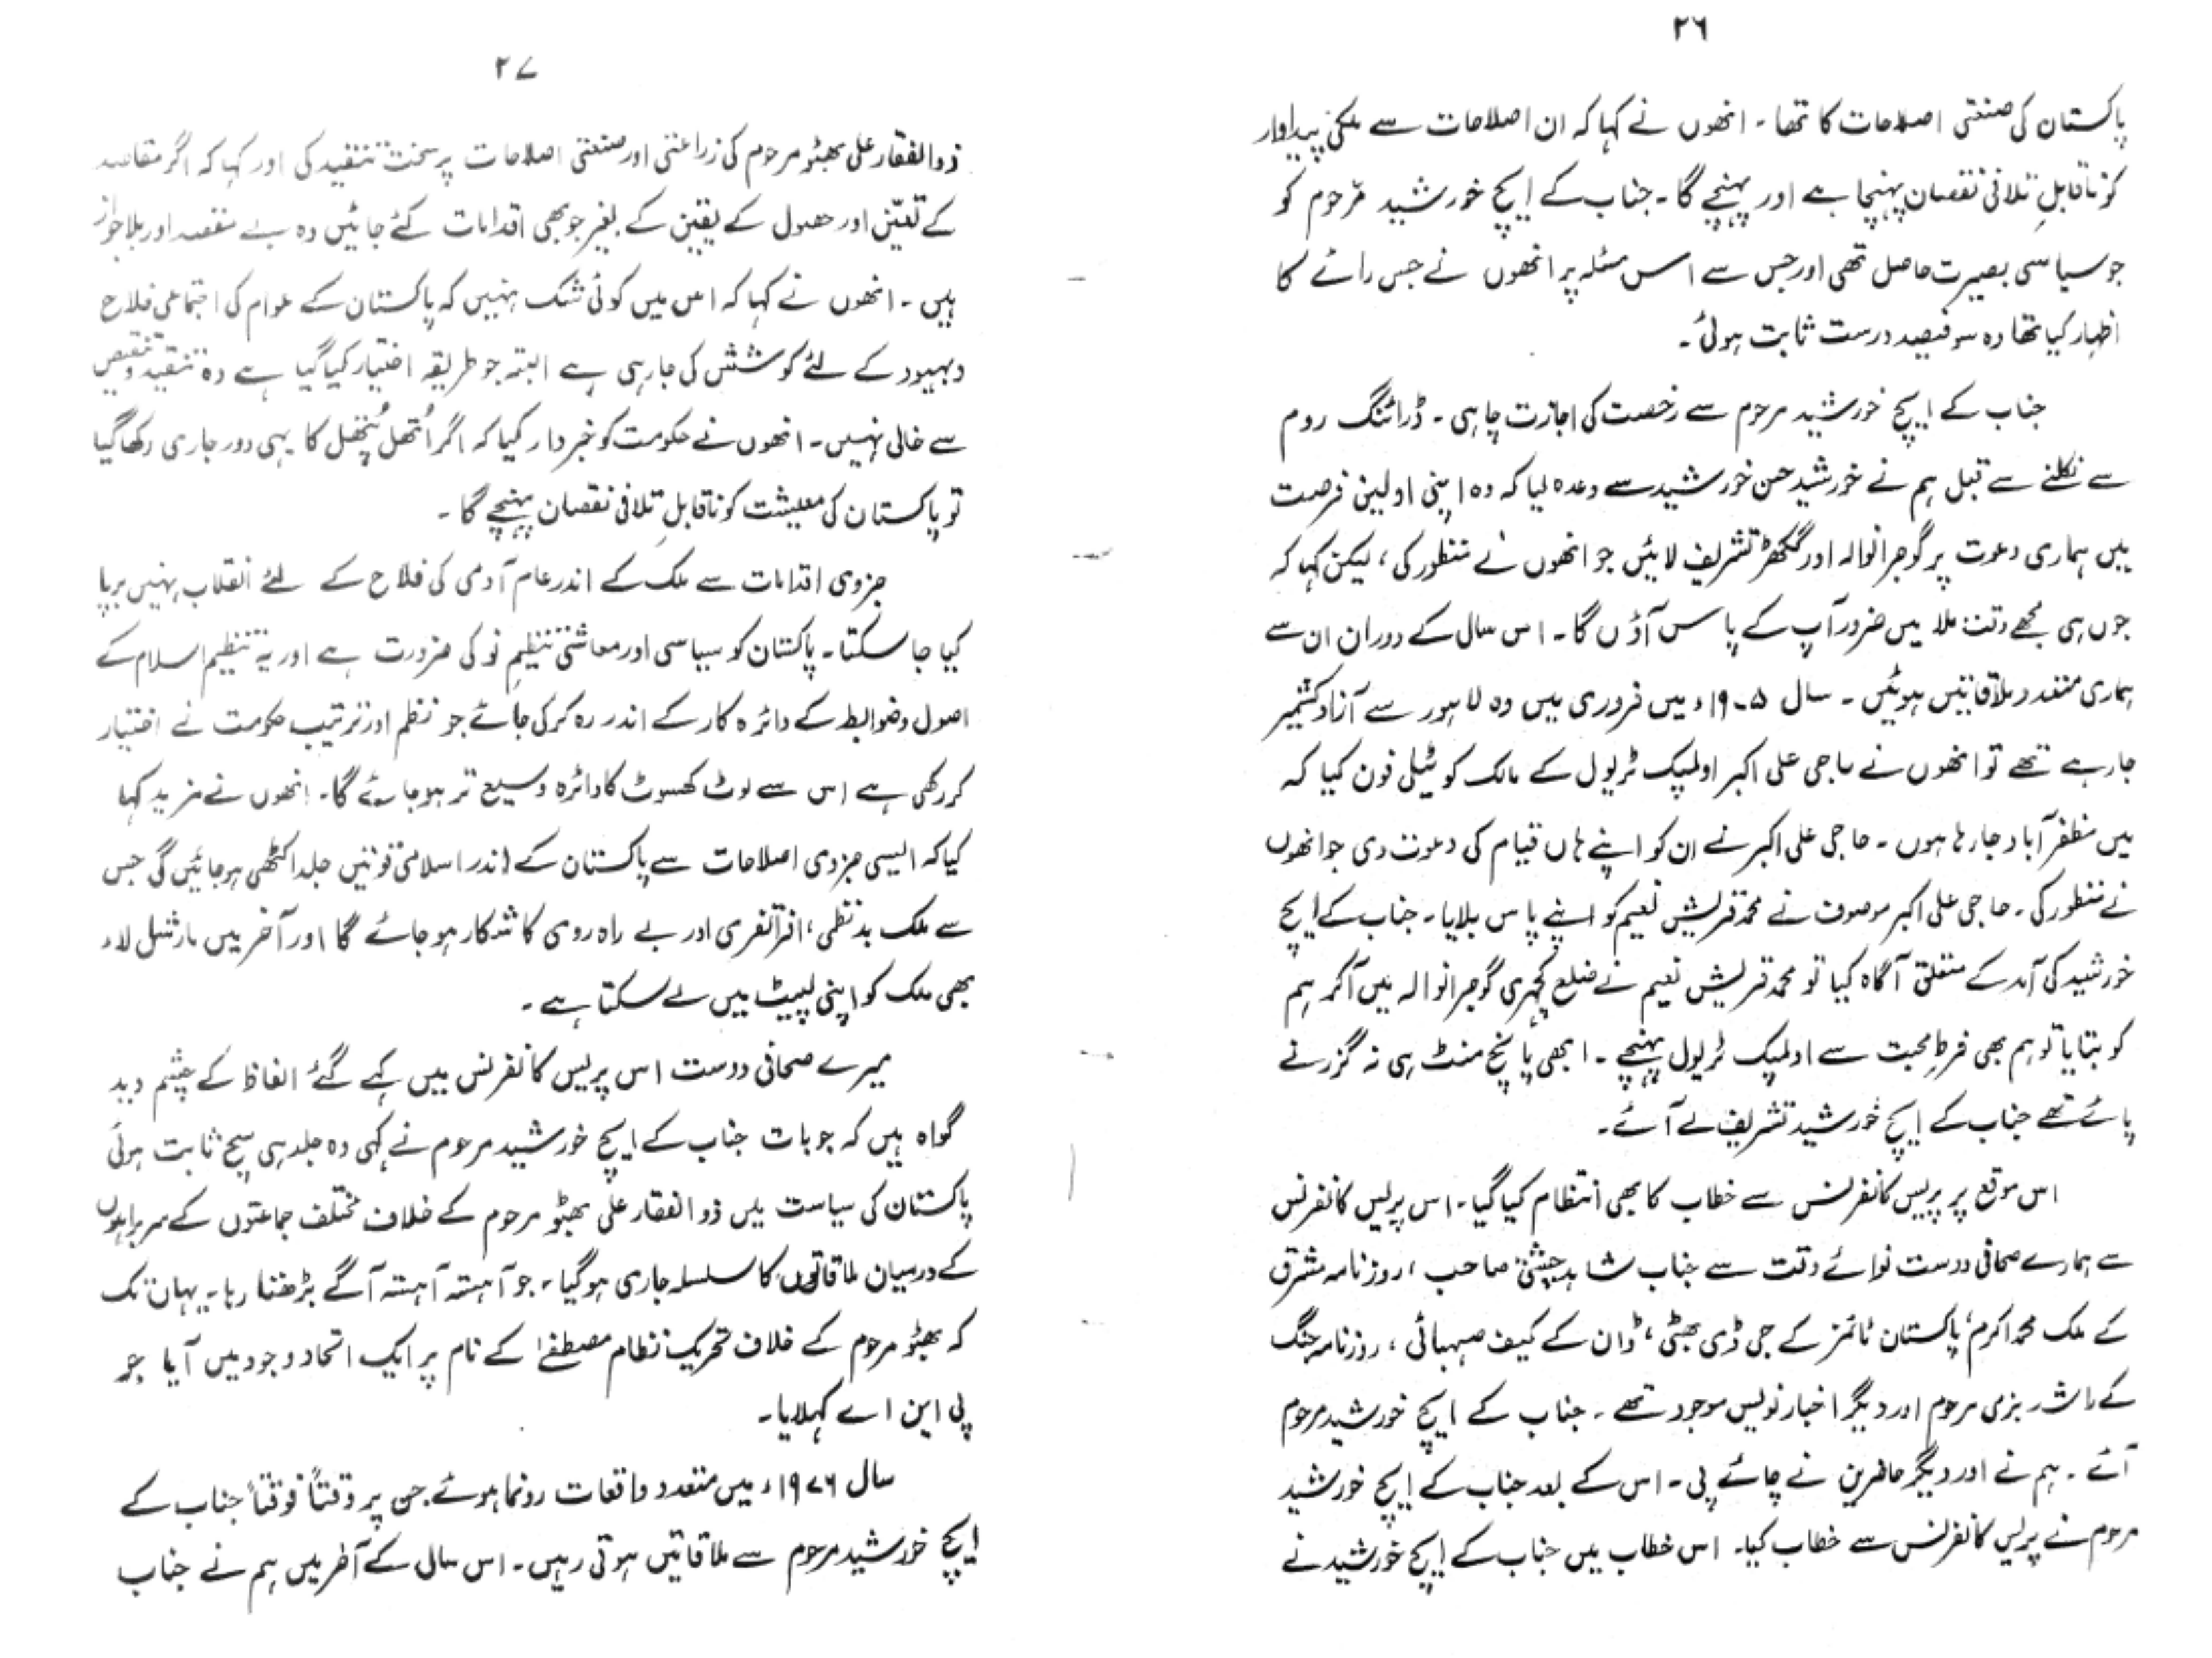 ۲٦
پاکستان کی صنعتی اصلاحات کا تھا۔ انھوں نے کہا کہ ان اصلاحات سے ملکی پیداوار
کو ناقابلِ تلافی نقصان پہنچا ہے اور پہنچے گا۔ جناب کے ایچ خورشید مرحوم کو
جو سیاسی بصیرت حاصل تھی اور جس سے اس مسئلہ پر انھوں نے جس رائے کا
اظہار کیا تھا وہ سو فیصد درست ثابت ہوئی۔
جناب کے ایچ خورشید مرحوم سے رخصت کی اجازت چاہی۔ ڈرائنگ روم
سے نکلنے سے قبل ہم نے خورشید حسن خورشید سے وعدہ لیا کہ وہ اپنی اولین فرصت
میں ہماری دعوت پر گوجرانوالہ اور گکھڑ تشریف لائیں جو انھوں نے منظور کی، لیکن کہا کہ
جوں ہی مجھے وقت ملا میں ضرور آپ کے پاس آؤں گا۔ اس سال کے دوران ان سے
ہماری متعدد ملاقاتیں ہوئیں۔ سال ۱۹۷۵ء میں فروری میں وہ لاہور سے آزاد کشمیر
جا رہے تھے تو انھوں نے حاجی علی اکبر اولمپک ٹریول کے مالک کو ٹیلی فون کیا کہ
میں مظفر آباد جا رہا ہوں۔ حاجی علی اکبر نے ان کو اپنے ہاں قیام کی دعوت دی جو انھوں
نے منظور کی۔ حاجی علی اکبر موصوف نے محمد قریش نعیم کو اپنے پاس بلایا۔ جناب کے ایچ
خورشید کی آمد کے متعلق آگاہ کیا تو محمد قریش نعیم نے ضلع کچہری گوجرانوالہ میں آکر ہم
کو بتایا تو ہم بھی فرطِ محبت سے اولمپک ٹریول پہنچے۔ ابھی پانچ منٹ ہی نہ گزرنے
پائے تھے جناب کے ایچ خورشید تشریف لے آئے۔
اس موقع پر پریس کانفرنس سے خطاب کا بھی انتظام کیا گیا۔ اس پریس کانفرنس
سے ہمارے صحافی دوست نوائے وقت سے جناب شاہد چشتی صاحب، روزنامہ مشرق
کے ملک محمد اکرم، پاکستان ٹائمز کے جی ڈی بھٹی، ڈان کے کیف صہبائی، روزنامہ جنگ
کے راشد بزمی مرحوم اور دیگر اخبار نویس موجود تھے۔ جناب کے ایچ خورشید مرحوم
آئے۔ ہم نے اور دیگر حاضرین نے چائے پی۔ اس کے بعد جناب کے ایچ خورشید
مرحوم نے پریس کانفرنس سے خطاب کیا۔ اس خطاب میں جناب کے ایچ خورشید نے
۲۷
ذوالفقار علی بھٹو مرحوم کی زراعتی اور صنعتی اصلاحات پر سخت تنقید کی اور کہا کہ اگر مقاصد
کے تعیّن اور حصول کے یقین کے بغیر جو بھی اقدامات کئے جائیں وہ بے مقصد اور بلا جواز
ہیں۔ انھوں نے کہا کہ اس میں کوئی شک نہیں کہ پاکستان کے عوام کی اجتماعی فلاح
وبہبود کے لئے کوشش کی جا رہی ہے البتہ جو طریقہ اختیار کیا گیا ہے وہ تنقید و تنقیص
سے خالی نہیں۔ انھوں نے حکومت کو خبردار کیا کہ اگر اُتھل پُتھل کا یہی دور جاری رکھا گیا
تو پاکستان کی معیشت کو ناقابلِ تلافی نقصان پہنچے گا۔
جزوی اقدامات سے ملک کے اندر عام آدمی کی فلاح کے لئے انقلاب نہیں برپا
کیا جا سکتا۔ پاکستان کو سیاسی اور معاشی تنظیمِ نو کی ضرورت ہے اور یہ تنظیم اسلام کے
اصول وضوابط کے دائرہ کار کے اندر رہ کر کی جائے جو نظم اور ترتیب حکومت نے اختیار
کر رکھی ہے اس سے لوٹ کھسوٹ کا دائرہ وسیع تر ہو جائے گا۔ انھوں نے مزید کہا
کیا کہ ایسی جزوی اصلاحات سے پاکستان کے اندر اسلامی قوتیں جلد اکٹھی ہو جائیں گی جس
سے ملک بدنظمی، افراتفری اور بے راہ روی کا شکار ہو جائے گا اور آخر میں مارشل لاء
بھی ملک کو اپنی لپیٹ میں لے سکتا ہے۔
میرے صحافی دوست اس پریس کانفرنس میں کہے گئے الفاظ کے چشم دید
گواہ ہیں کہ جو بات جناب کے ایچ خورشید مرحوم نے کہی وہ جلد ہی سچ ثابت ہوئی
پاکستان کی سیاست میں ذوالفقار علی بھٹو مرحوم کے خلاف مختلف جماعتوں کے سربراہوں
کے درمیان ملاقاتوں کا سلسلہ جاری ہو گیا، جو آہستہ آہستہ آگے بڑھتا رہا۔ یہاں تک
کہ بھٹو مرحوم کے خلاف تحریک نظام مصطفےٰ کے نام پر ایک اتحاد وجود میں آیا جو
پی این اے کہلایا۔
سال ۱۹۷۶ء میں متعدد واقعات رونما ہوئے جن پر وقتاً فوقتاً جناب کے
ایچ خورشید مرحوم سے ملاقاتیں ہوتی رہیں۔ اس سال کے آخر میں ہم نے جناب